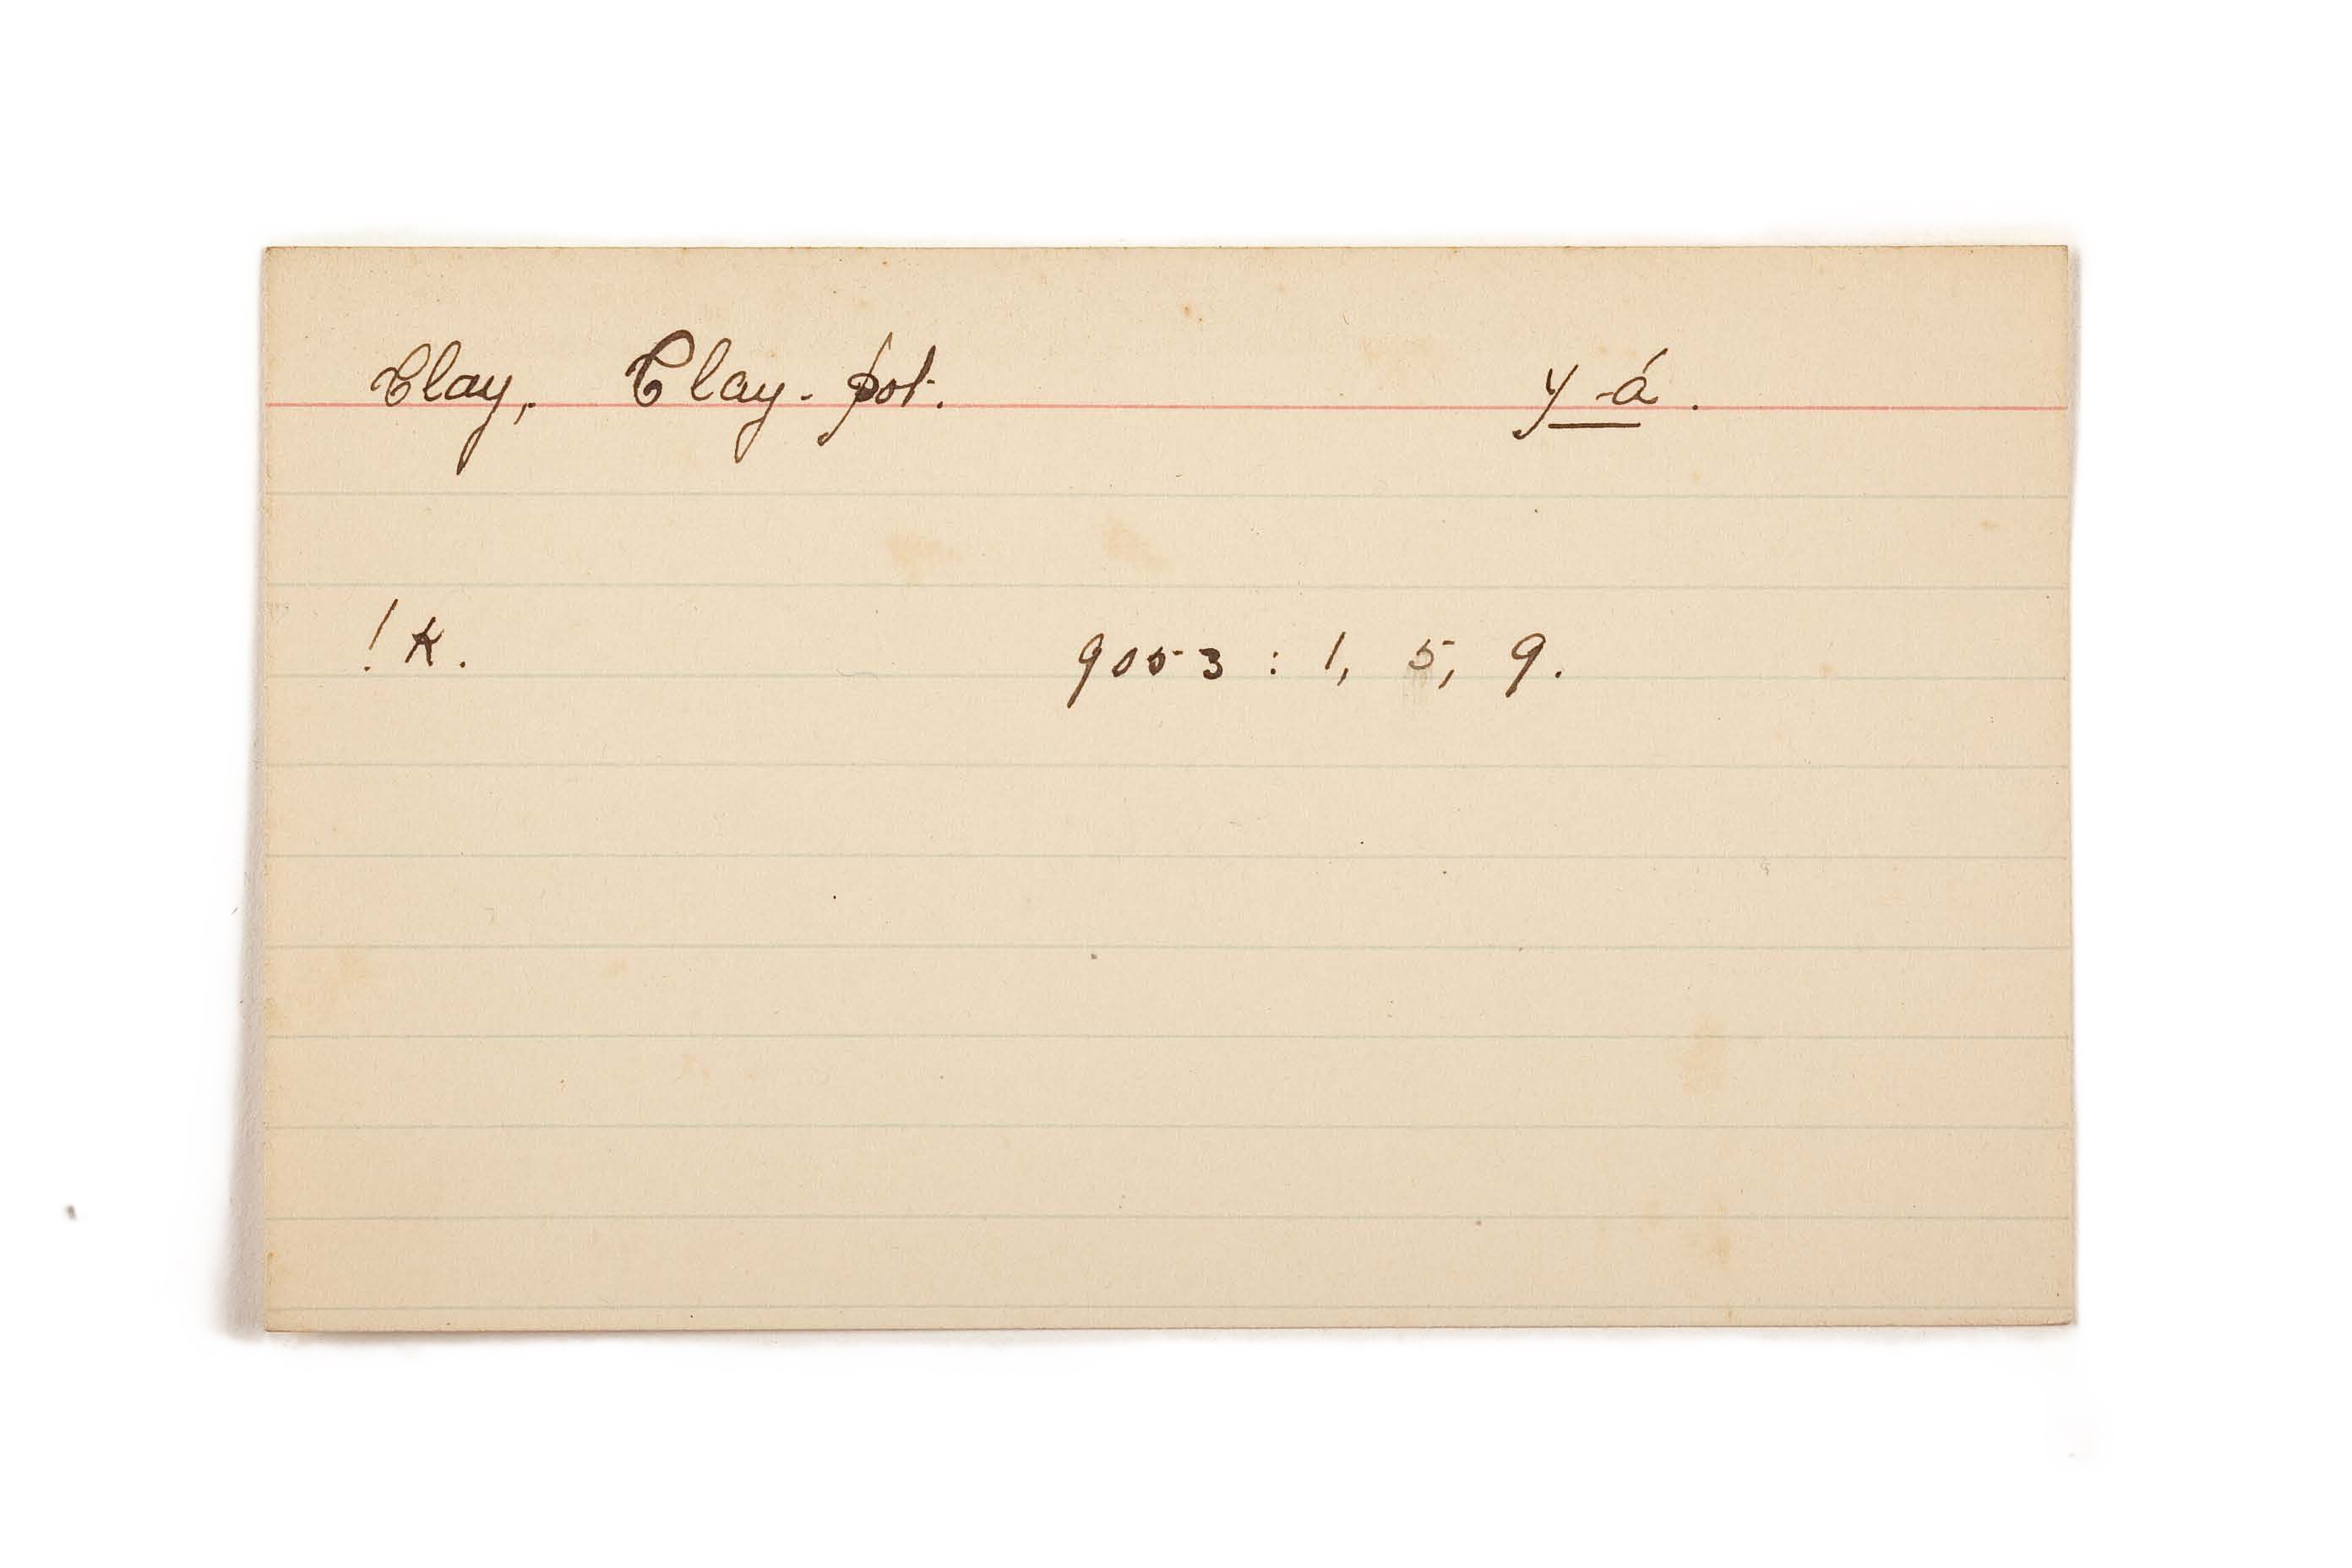 Clay, Clay-pot. y-á.
!k. 9053 : 1, 5, 9.